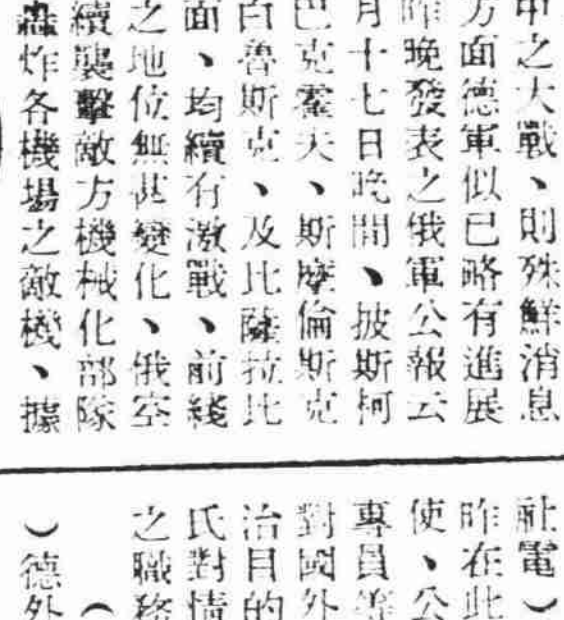 中之大戰、則殊鮮消息
方面德軍似已略有進展
昨晚發表之俄軍公報云
月十七日晚間、披斯柯
巴克霍夫、斯摩倫斯克
白魯斯克、及比薩拉比
面、均續有激戰、前綫
之地位無甚變化、俄空
續襲擊敵方機械化部隊
轟炸各機場之敵機、據
社電)
昨在此
使、公
專員等
對國外
治目的
氏對情
之職務
(
)德外